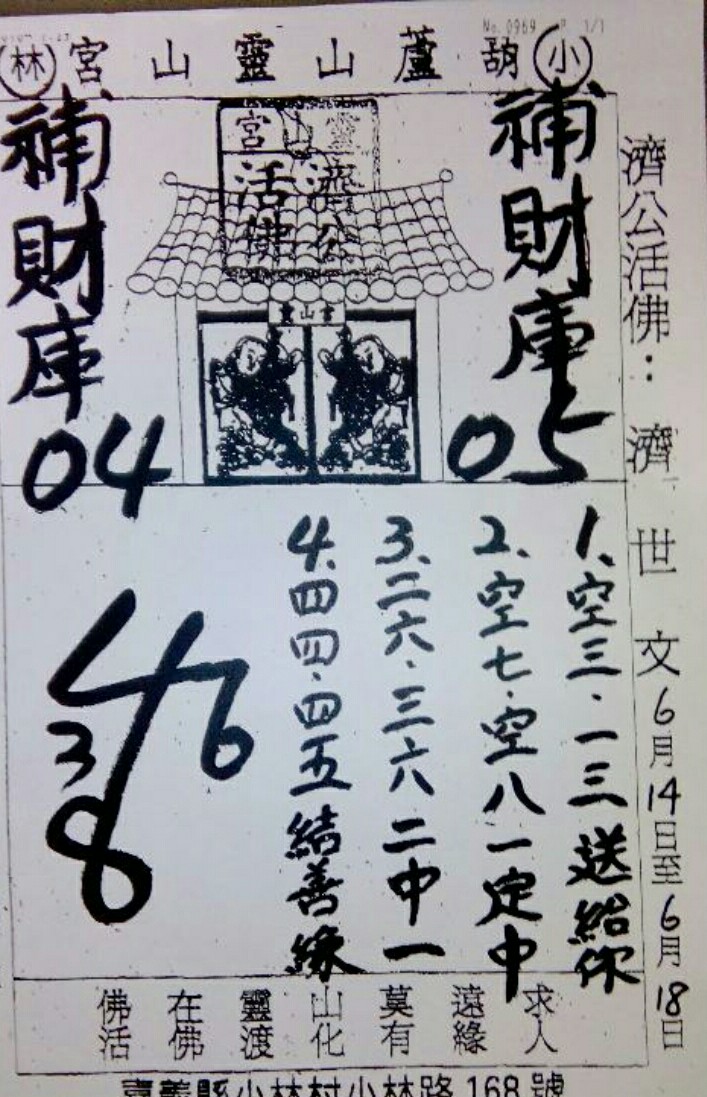 No. 0969 P 1/1
小 胡蘆山靈山宮 林
濟公活佛：濟世文6月14日至6月18日
靈山宮
濟公活佛
補財庫
05
補財庫
04
1、空三．一三送給你
2、空七．空八一定中
3、二六．三六二中一
4、四四．四五結善緣
46
3
8
求人
遠緣
莫有
山化
靈渡
在佛
佛活
嘉義縣小林村小林路168號